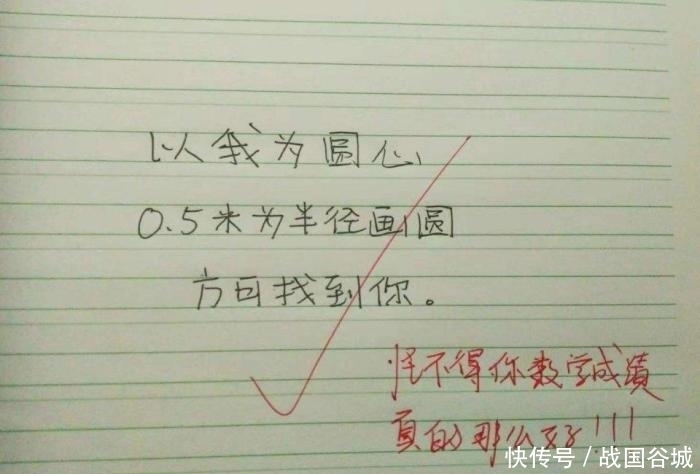 以我为圆心
0.5米为半径画圆
方可找到你。
怪不得你数学成绩
真的那么好!!!
快传号/战国谷城